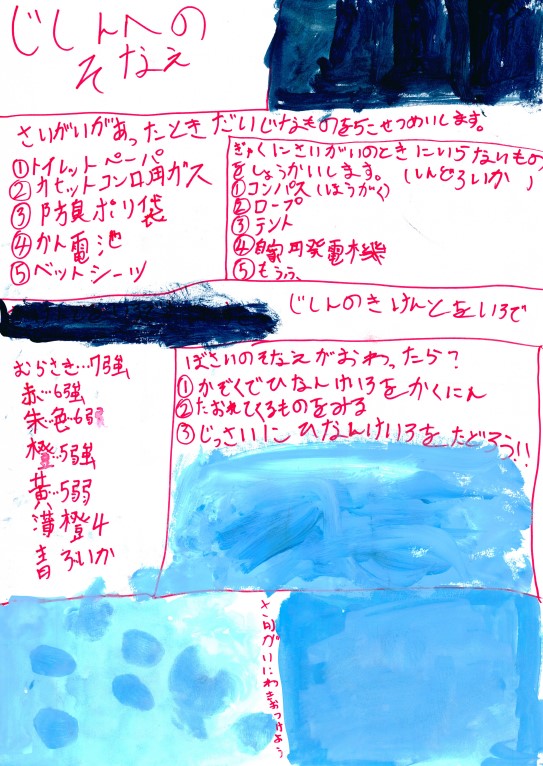 じしんへの
そなえ
さいがいがあったときだいじなものを5こせつめいします。
①トイレットペーパ
②カセットコンロ用ガス
③防臭ポリ袋
④かん電池
⑤ペットシーツ
ぎゃくにさいがいのときにいらないもの
をしょうかいします。(しんど3いか)
①コンパス(ほうがく)
②ロープ
③テント
④自家用発電機
⑤もうふ
じしんのきけんどをいろで
むらさき…7強
赤…6強
朱色…6弱
橙…5強
黄…5弱
薄橙4
青3いか
ぼさいのそなえがおわったら?
①かぞくでひなんけいろをかくにん
②たおれてくるものをみる
③じっさいにひなんけいろをたどろう!!